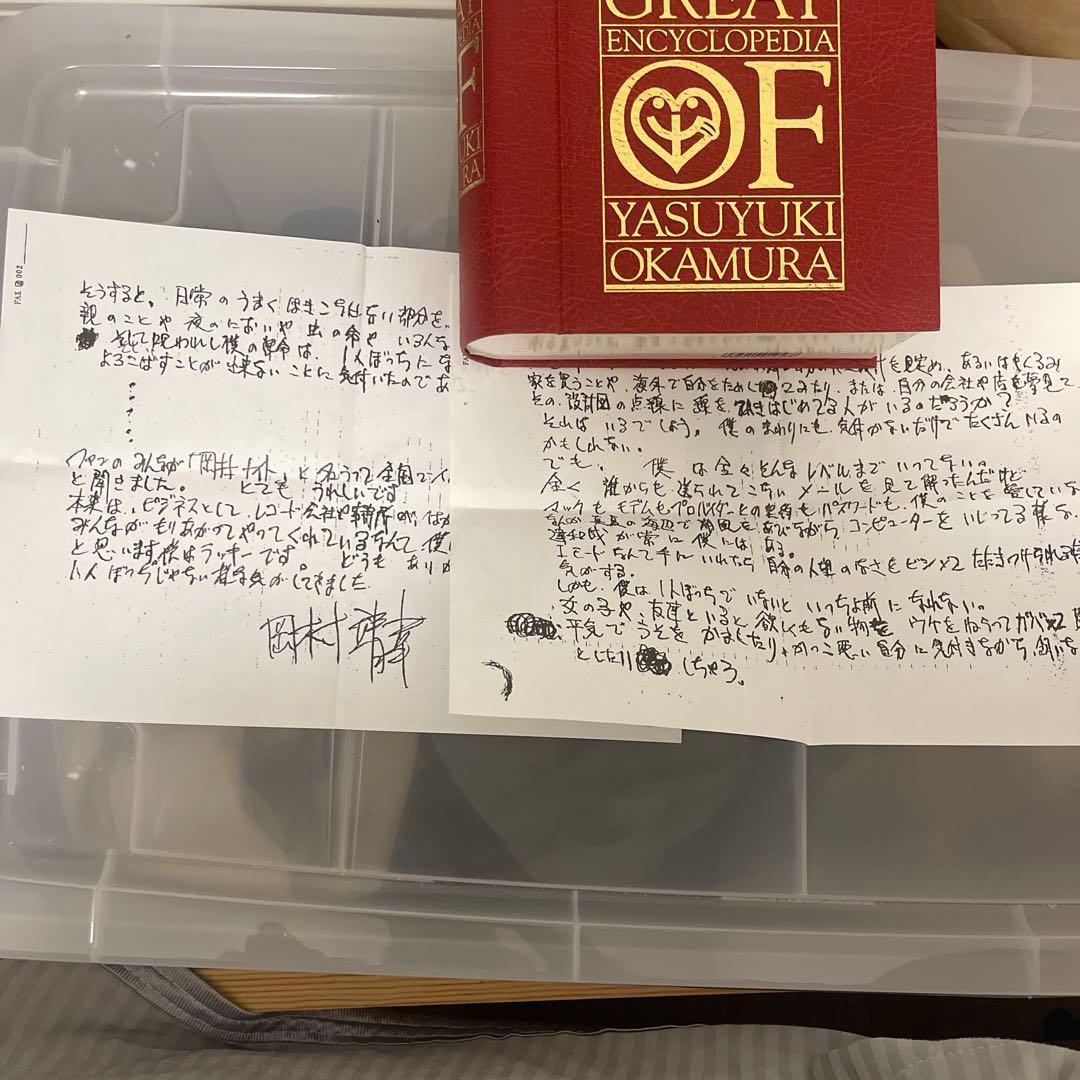 GREAT
ENCYCLOPEDIA
OF
YASUYUKI
OKAMURA
FAX 002
そうすると、日常のうまくはまこられない部分を、
親のことや夜のにおいや虫の命や いろんな
そして呪われし僕の革命は、1人ぼっちにな
よろこばすことが出来ないことに気付いたのであ
ファンのみんなが「岡村ナイト」と名うって全国でイ
と聞きました。 とても うれしいです
本来は、ビジネスとして、レコード会社や事務所が、
みんながもりあがってやってくれているなんて 僕
と思います僕はラッキーです。 どうも ありが
1人ぼっちじゃない様な気がしてきました
岡村靖幸
を見定め、あるいは
家を買うことや、海外で自分をためしてみたり、または、自分の会社や店を夢見て
その、設計図の点線に線を、ひきはじめてる人がいるのだろうか?
それはいるでしょう。僕のまわりにも、気付かないだけでたくさんいるの
かもしれない。
でも、 僕は全々そんなレベルまでいってない。
全く 誰からも送られてこないメールを見て解ったんだけど
マックもモデムもプロバイダーとの契約もパスワードも、僕のことを愛していな
海辺で 潮風を あびながら コンピューターをいじってる様な、
違和感が常に僕にはある。
Iモードなんて手にいれたら自分の人望のなさをビンビンたたきつけられる
気がする。
しかも、僕は1人ぼっちでいないといっちょ前になれない。
女の子や、友達といると、欲しくもない物をウケをねらってガバッと
平気で うそをかましたり、かっこ悪い自分に気付きながら、
としたりしちゃう。